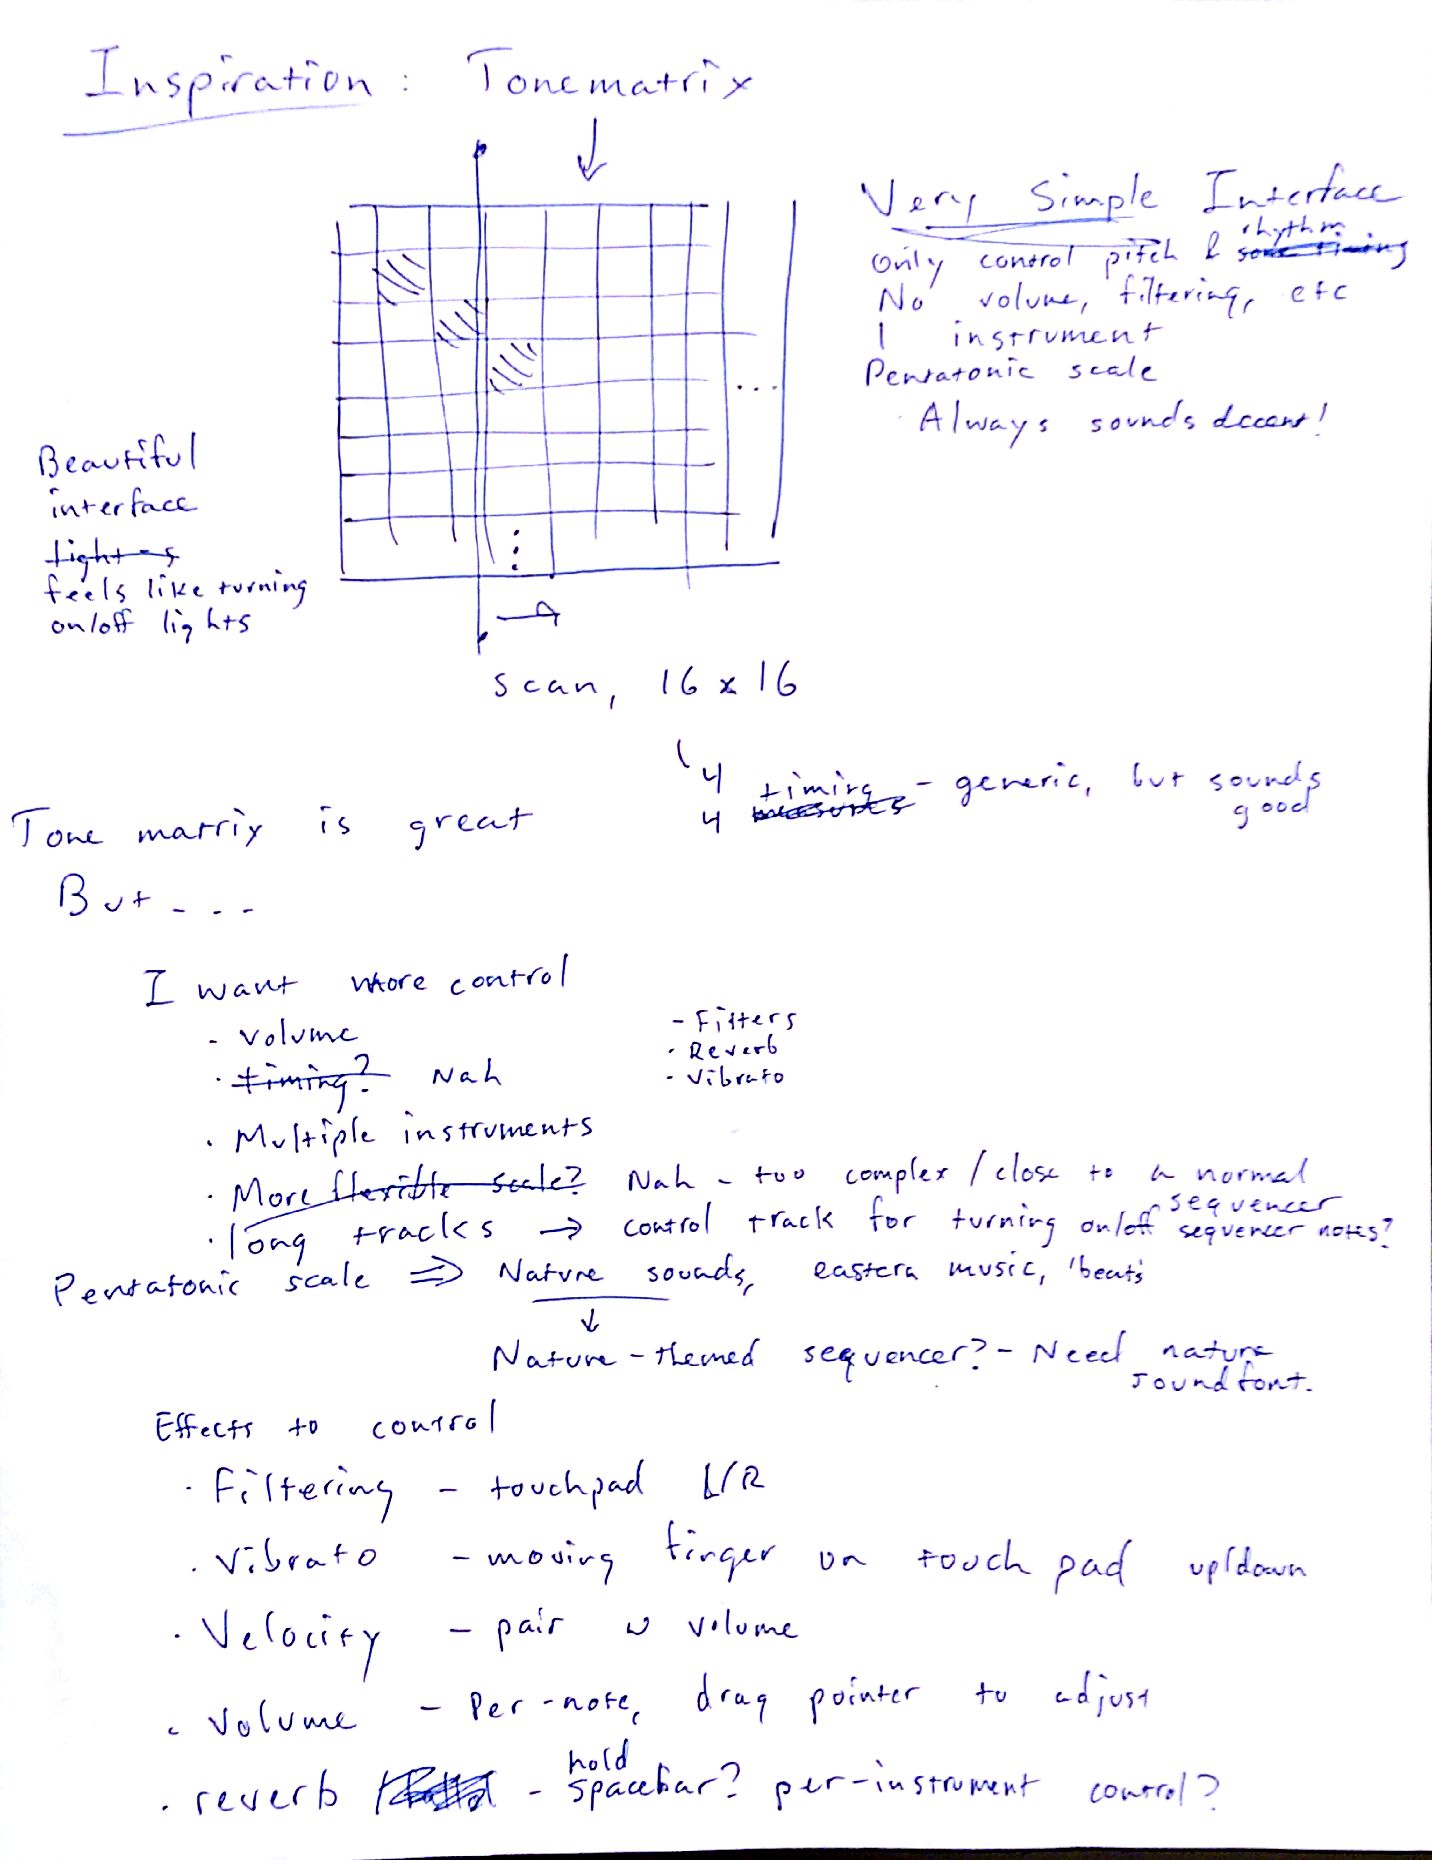 Inspiration: Tonematrix
Very Simple Interface
Only control pitch & rhythm
No volume, filtering, etc
1 instrument
Pentatonic scale
Always sounds decent!
...
Beautiful
interface
feels like turning
on/off lights
scan, 16 x 16
4 timing - generic, but sounds
4 measures
good
Tone matrix is great
But - - -
I want more control
- Volume
· timing? Nah
· Multiple instruments
· More flexible scale? Nah - too complex / close to a normal
sequencer
· long tracks → control track for turning on/off sequencer notes?
- Filters
· Reverb
- Vibrato
Pentatonic scale ⇒ Nature sounds, eastern music, 'beats'
Nature-themed sequencer? - Need nature
soundfont.
Effects to control
· Filtering - touchpad L/R
· Vibrato - moving finger on touch pad up/down
· Velocity - pair w volume
· Volume - Per-note, drag pointer to adjust
· reverb - hold spacebar? per-instrument control?